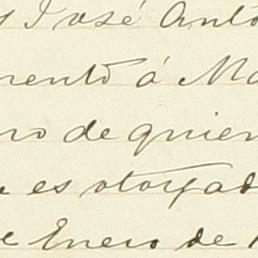 José Anto
mento á Ma
ro de quien
es otorgad
e Enero de 1